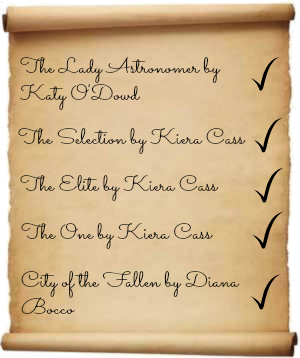 The Lady Astronomer by
Katy O'Dowd
The Selection by Kiera Cass
The Elite by Kiera Cass
The One by Kiera Cass
City of the Fallen by Diana
Bocco